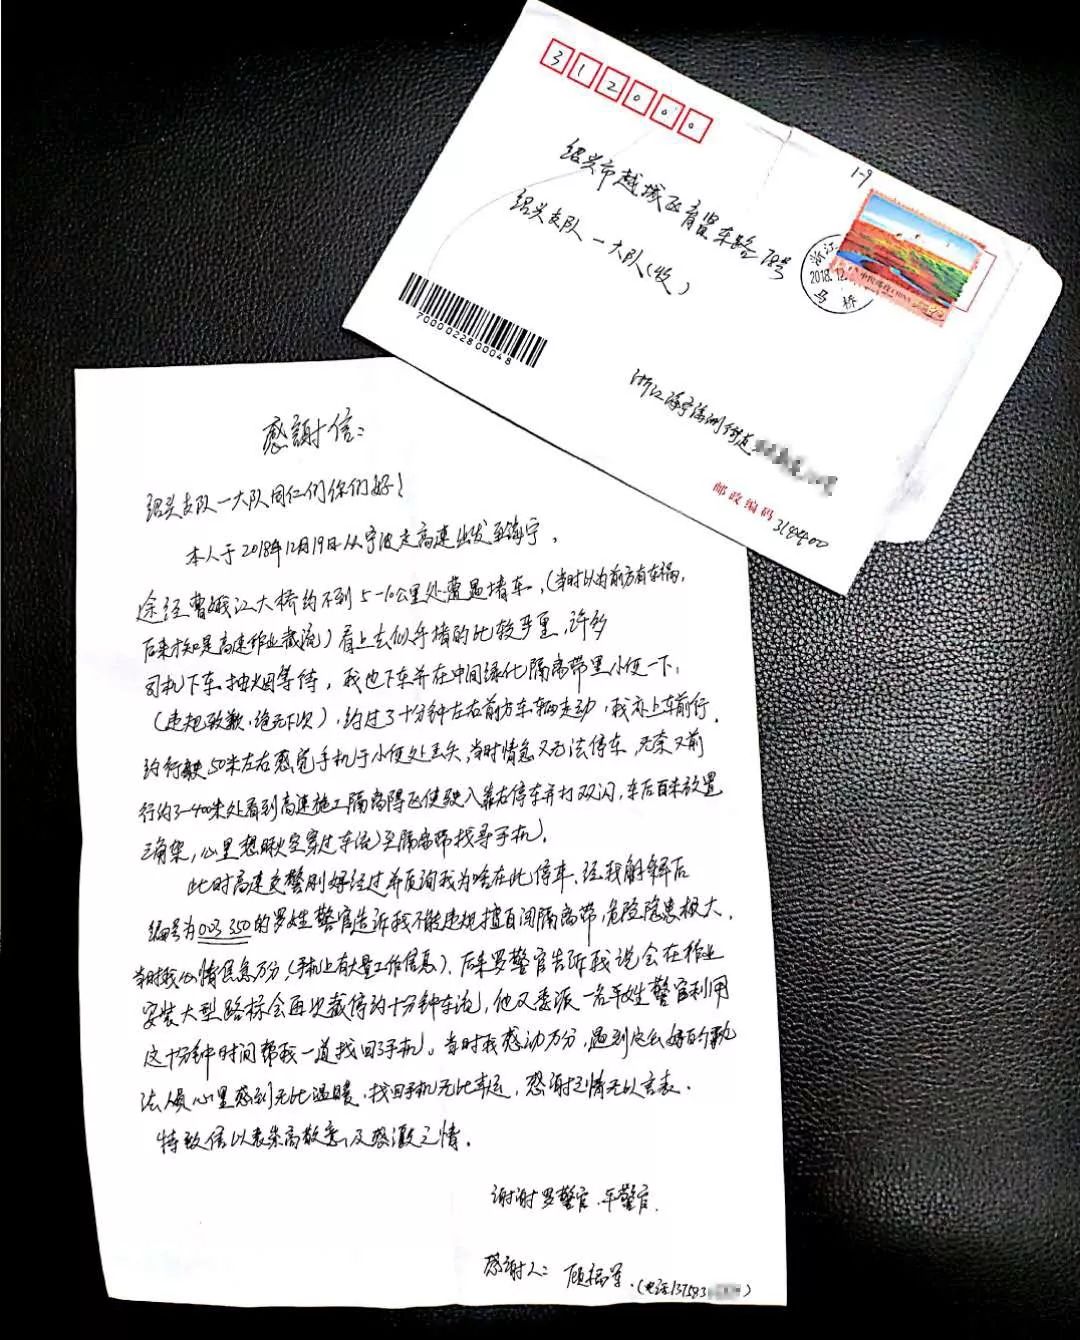 312000
绍兴市越城区育贤东路78号
绍兴支队一大队(收)
1-9
浙江
2018.12.
马桥
中国邮政 CHINA
7000022800048
浙江海宁海洲街道
邮政编码 314400
感謝信:
绍兴支队一大队同仁们你们好!
本人于2018年12月19日从宁波走高速出发至海宁,
途经曹娥江大桥约不到5-10公里处遭遇堵车,(当时以为前方有车祸,
后来才知是高速作业截流)看上去似乎堵的比较严重,许多
司机下车抽烟等待,我也下车并在中间绿化隔离带里小便一下,
(违规致歉,绝无下次),约过了十分钟左右前方车辆走动,我亦上车前行,
约行驶50米左右感觉手机于小便处丢失,当时情急又无法停车,无奈又前
行约3-400米处看到高速施工隔离障区使驶入靠右停车并打双闪,车后百米放置
三角架,心里想瞅空穿过车流至隔离带找寻手机,
此时高速交警刚好经过并质询我为啥在此停车,经我解释后
编号为003350的罗姓警官告诉我不能违规擅自闯隔离带,危险隐患极大,
当时我心情焦急万分(手机上有大量工作信息),后来罗警官告诉我说会在作业
安装大型路标会再次截停约十分钟车流,他又委派一名年姓警官利用
这十分钟时间帮我一道找回了手机。当时我感动万分,遇到这么好的执
法人员心里感到无比温暖,找回手机无比幸运,感谢之情无以言表,
特致信以表崇高敬意及感激之情,
谢谢罗警官、年警官.
感謝人: 顾 军.(电话:137583